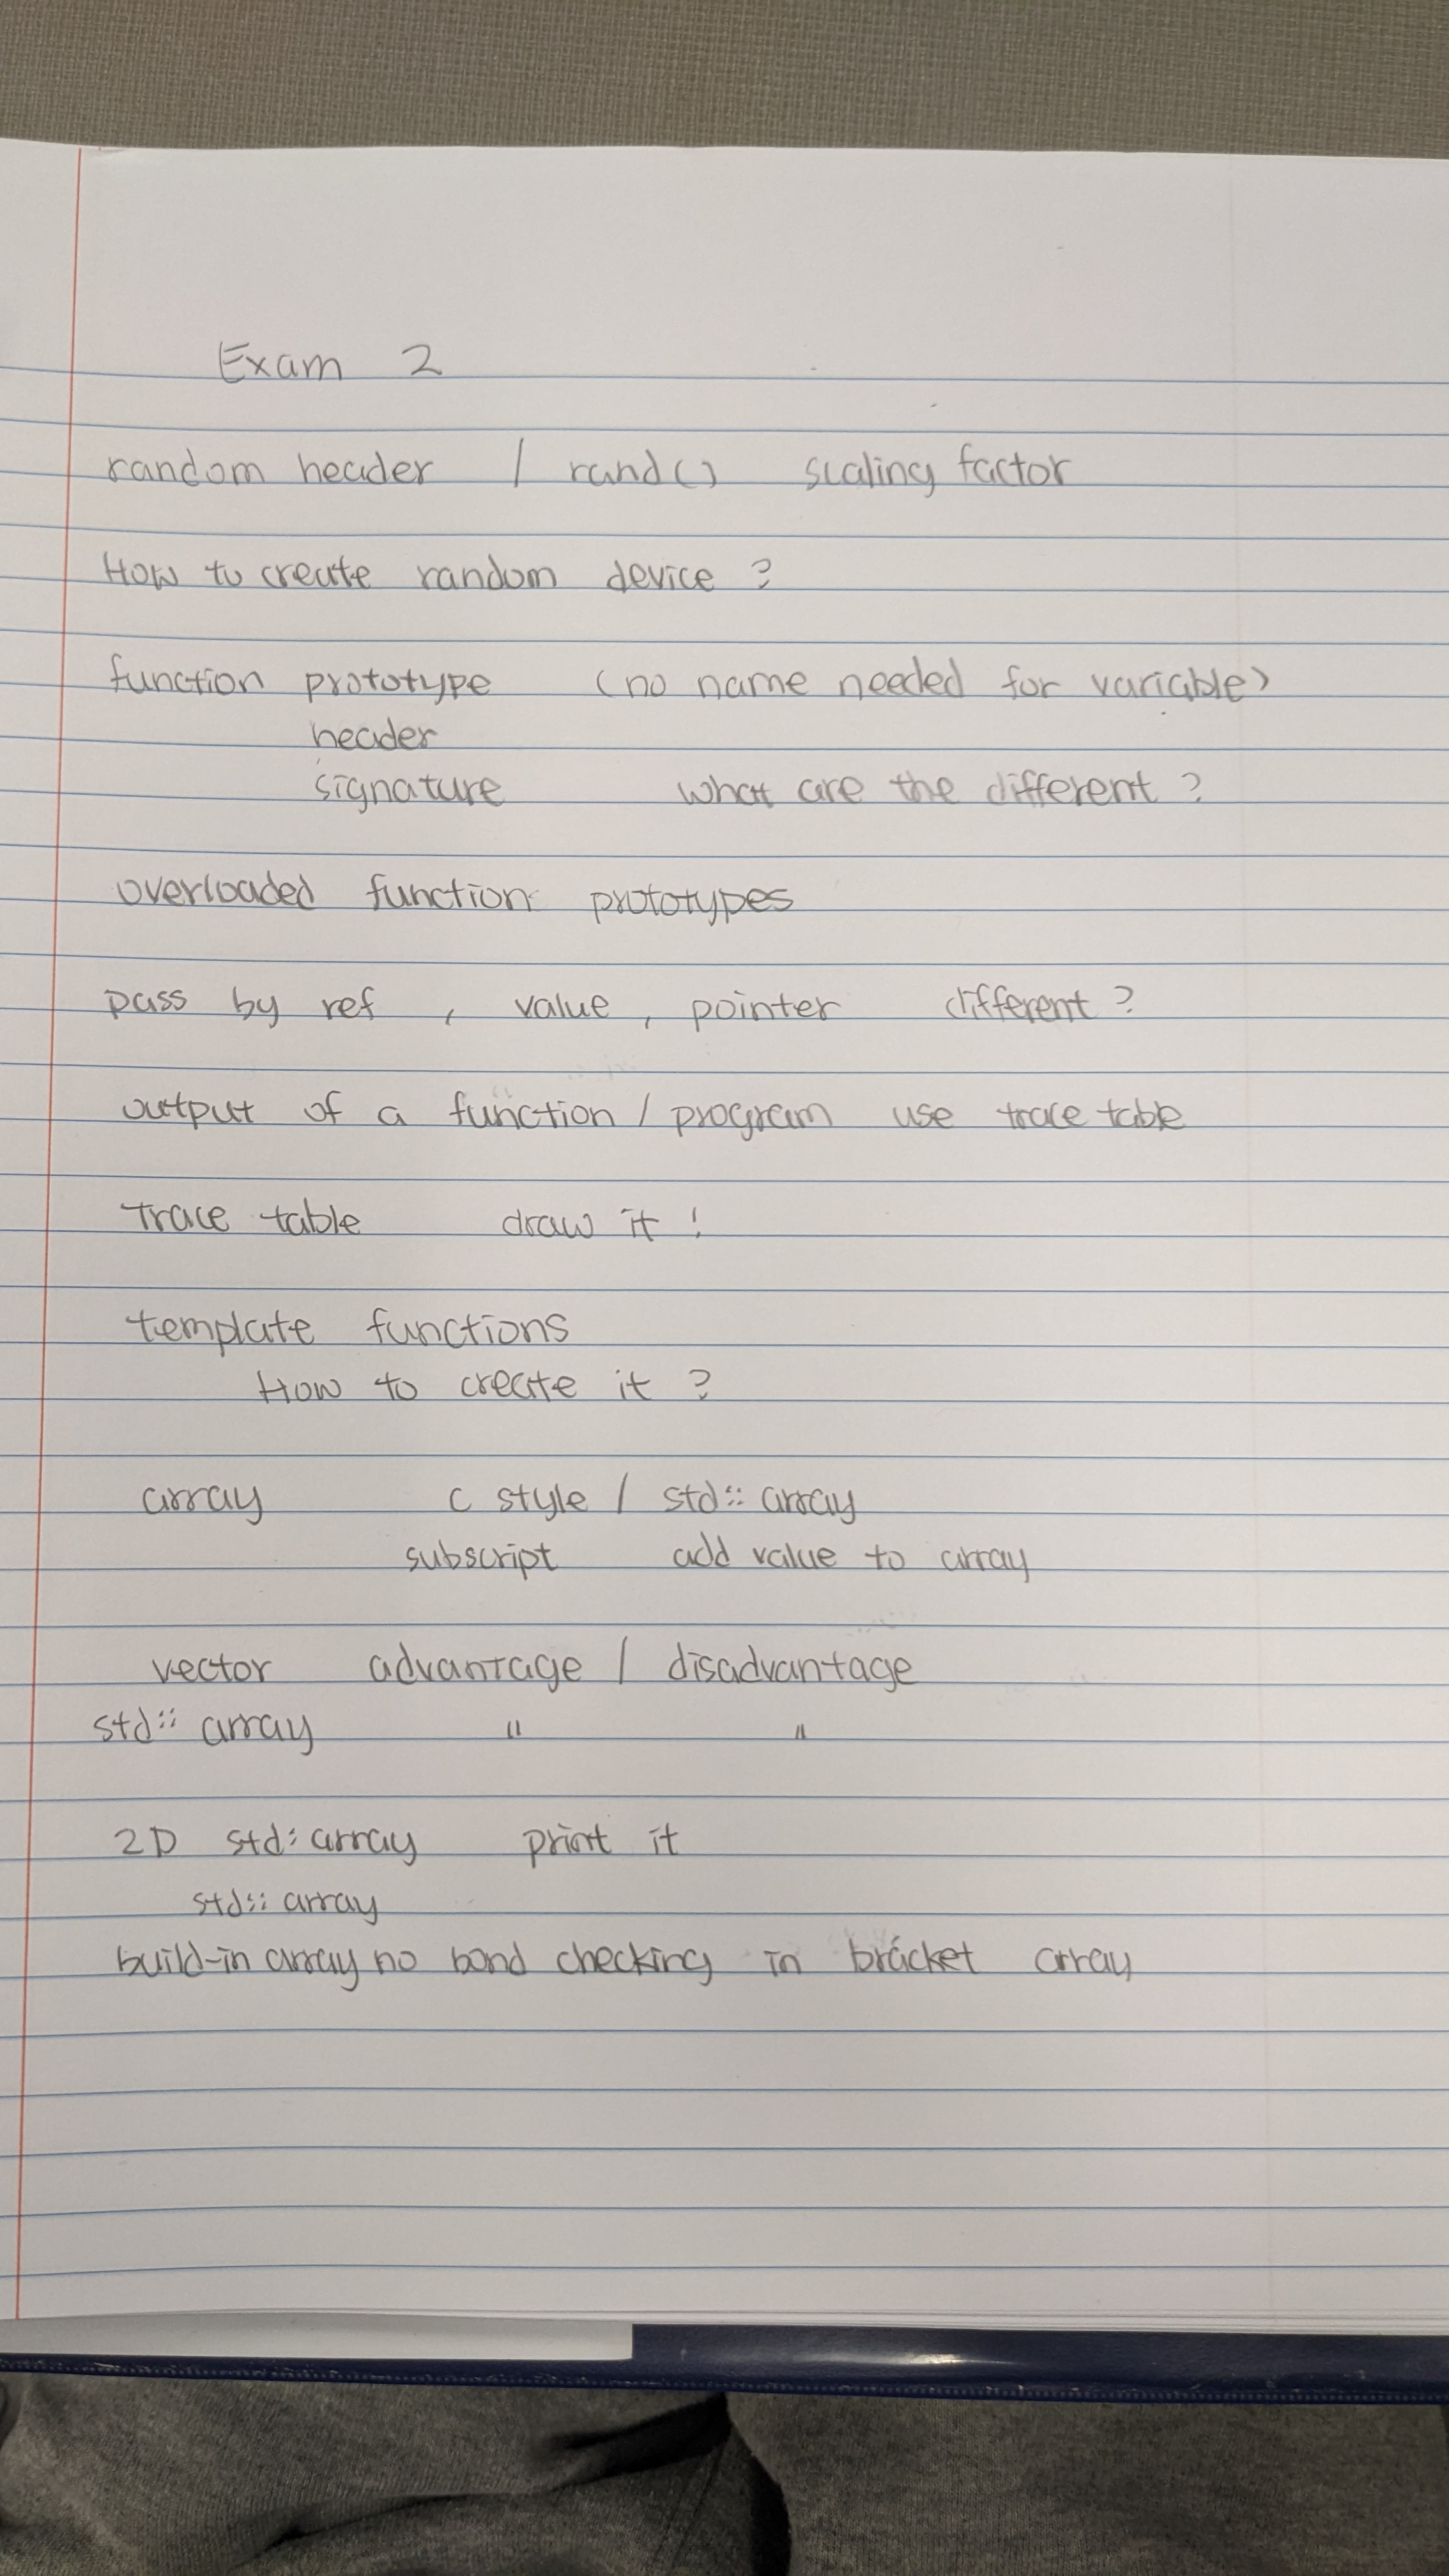 Exam 2
random header / rand() scaling factor
How to create random device ?
function prototype (no name needed for variable)
header
signature what are the different ?
overloaded function prototypes
pass by ref , value , pointer different ?
output of a function / program use trace table
trace table draw it !
template functions
How to create it ?
array c style / std:: array
subscript add value to array
vector advantage / disadvantage
std:: array " "
2D std: array print it
std:: array
build-in array no bond checking in bracket array